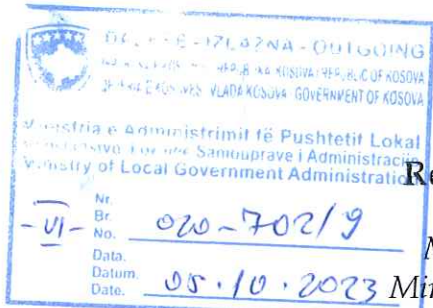 DALJE - IZLAZNA - OUTGOING
REPUBLIKA KOSOVA / REPUBLIC OF KOSOVA
VLADA KOSOVA GOVERNMENT OF KOSOVA
Ministria e Administrimit të Pushtetit Lokal
Samouprave i Administracije
Ministry of Local Government Administration
Re
- VI -
Nr.
Br.
No. 020-702/9
Data.
Datum.
Date. 05.10.2023